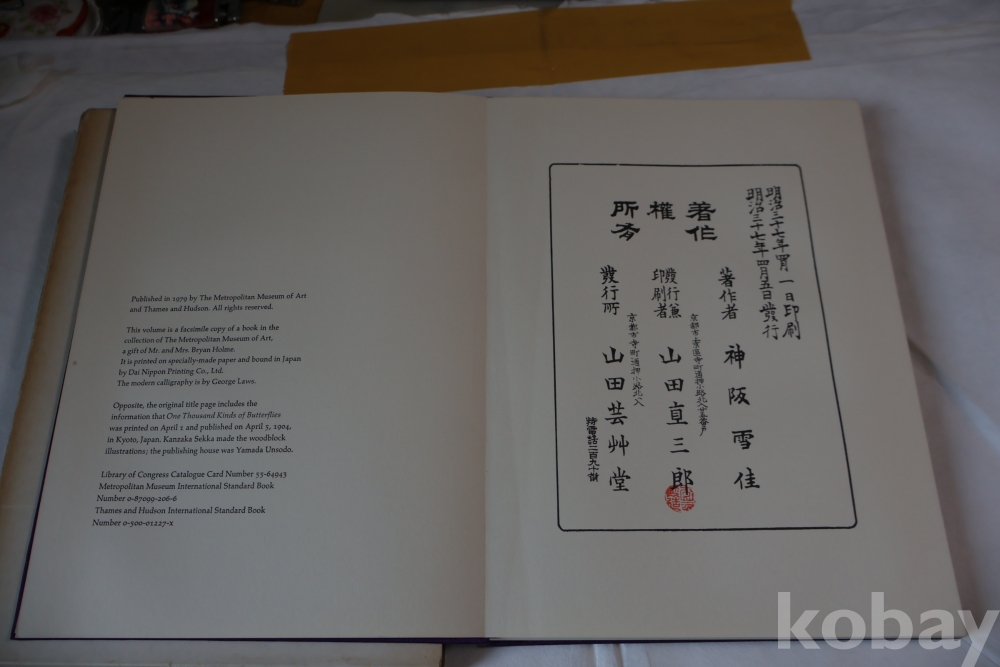 Published in 1979 by The Metropolitan Museum of Art
and Thames and Hudson. All rights reserved.
This volume is a facsimile copy of a book in the
collection of The Metropolitan Museum of Art,
a gift of Mr. and Mrs. Bryan Holme.
It is printed on specially-made paper and bound in Japan
by Dai Nippon Printing Co., Ltd.
The modern calligraphy is by George Laws.
Opposite, the original title page includes the
information that One Thousand Kinds of Butterflies
was printed on April 1 and published on April 5, 1904,
in Kyoto, Japan. Kanzaka Sekka made the woodblock
illustrations; the publishing house was Yamada Unsodo.
Library of Congress Catalogue Card Number 55-64943
Metropolitan Museum International Standard Book
Number 0-87099-206-6
Thames and Hudson International Standard Book
Number 0-500-01227-x
明治三十七年四月一日印刷
明治三十七年四月五日發行
著作
權
所有
著作者 神阪雪佳
發行兼
印刷者
山田直三郎
發行所
京都市寺町通押小路北入
山田芸艸堂
kobay